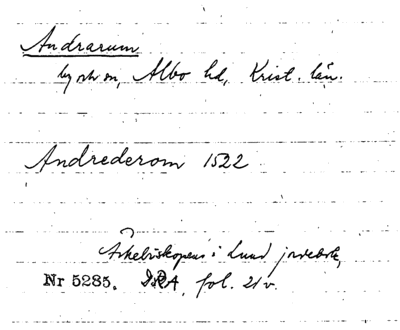 Andrarum
by och sn, Albo hd, Krist. län.
Andrederom 1522
Ärkebiskopens i Lund jordebok,
Nr 5285. DRA, fol. 21 v.